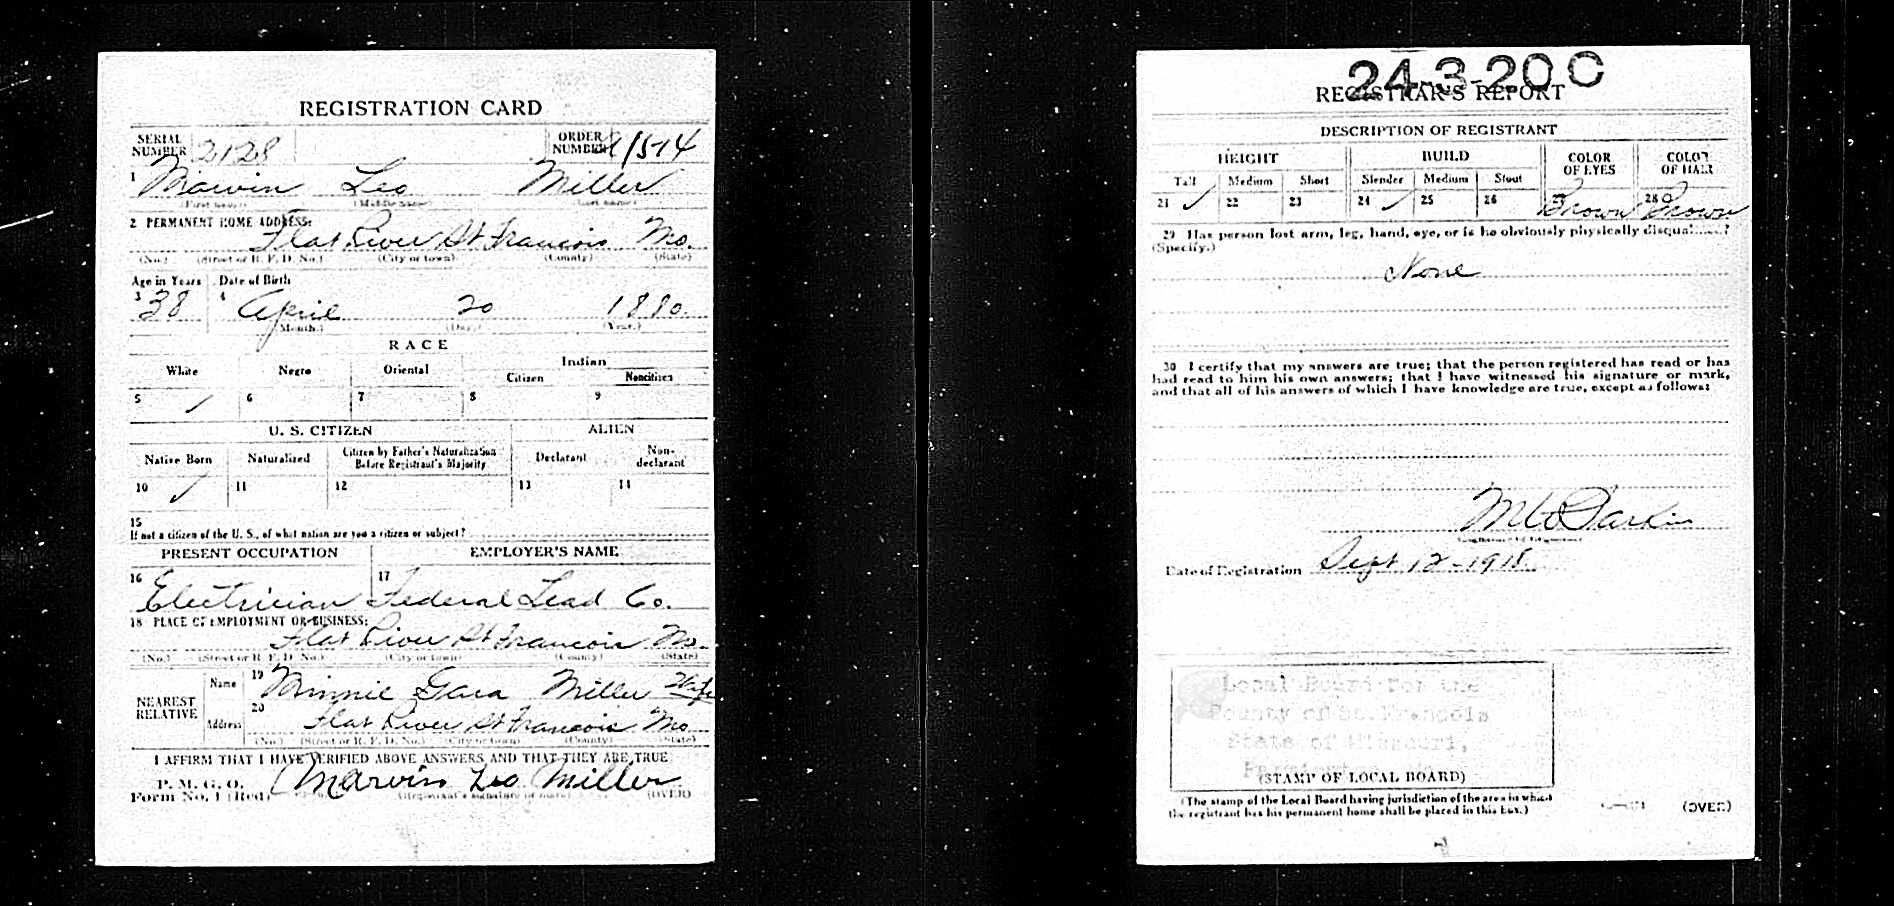 REGISTRATION CARD
SERIAL NUMBER 2128 ORDER NUMBER
1 Marvin Leo Miller
(First name) (Middle name) (Last name)
2 PERMANENT HOME ADDRESS:
Flat River St Francois Mo.
(No.) (Street or R. F. D. No.) (City or town) (County) (State)
Age in Years Date of Birth
3 38 4 April 20 1880.
(Month.) (Day.) (Year.)
RACE
White Negro Oriental Indian
Citizen Noncitizen
5 ✓ 6 7 8 9
U. S. CITIZEN ALIEN
Native Born Naturalized Citizen by Father's Naturalization Before Registrant's Majority Declarant Non-declarant
10 ✓ 11 12 13 14
15
If not a citizen of the U. S., of what nation are you a citizen or subject?
PRESENT OCCUPATION EMPLOYER'S NAME
16 Electrician 17 Federal Lead Co.
18 PLACE OF EMPLOYMENT OR BUSINESS:
Flat River St Francois Mo.
(No.) (Street or R. F. D. No.) (City or town) (County) (State)
NEAREST RELATIVE Name 19 Minnie Gara Miller Wife
Address 20 Flat River St Francois Mo
(No.) (Street or R. F. D. No.) (City or town) (County) (State)
I AFFIRM THAT I HAVE VERIFIED ABOVE ANSWERS AND THAT THEY ARE TRUE
P. M. G. O.
Form No. 1 (Red) Marvin Leo Miller
(Registrant's signature or mark) (OVER)
24-3-20 C
REGISTRAR'S REPORT
DESCRIPTION OF REGISTRANT
HEIGHT BUILD COLOR OF EYES COLOR OF HAIR
Tall Medium Short Slender Medium Stout
21 ✓ 22 23 24 ✓ 25 26 27 Brown 28 Brown
29 Has person lost arm, leg, hand, eye, or is he obviously physically disqualified?
(Specify.)
None
30 I certify that my answers are true; that the person registered has read or has
had read to him his own answers; that I have witnessed his signature or mark,
and that all of his answers of which I have knowledge are true, except as follows:
Date of Registration Sept 12-1918.
Local Board for the
County of St Francois
State of Missouri,
(STAMP OF LOCAL BOARD)
(The stamp of the Local Board having jurisdiction of the area in which
the registrant has his permanent home shall be placed in this box.)
(OVER)